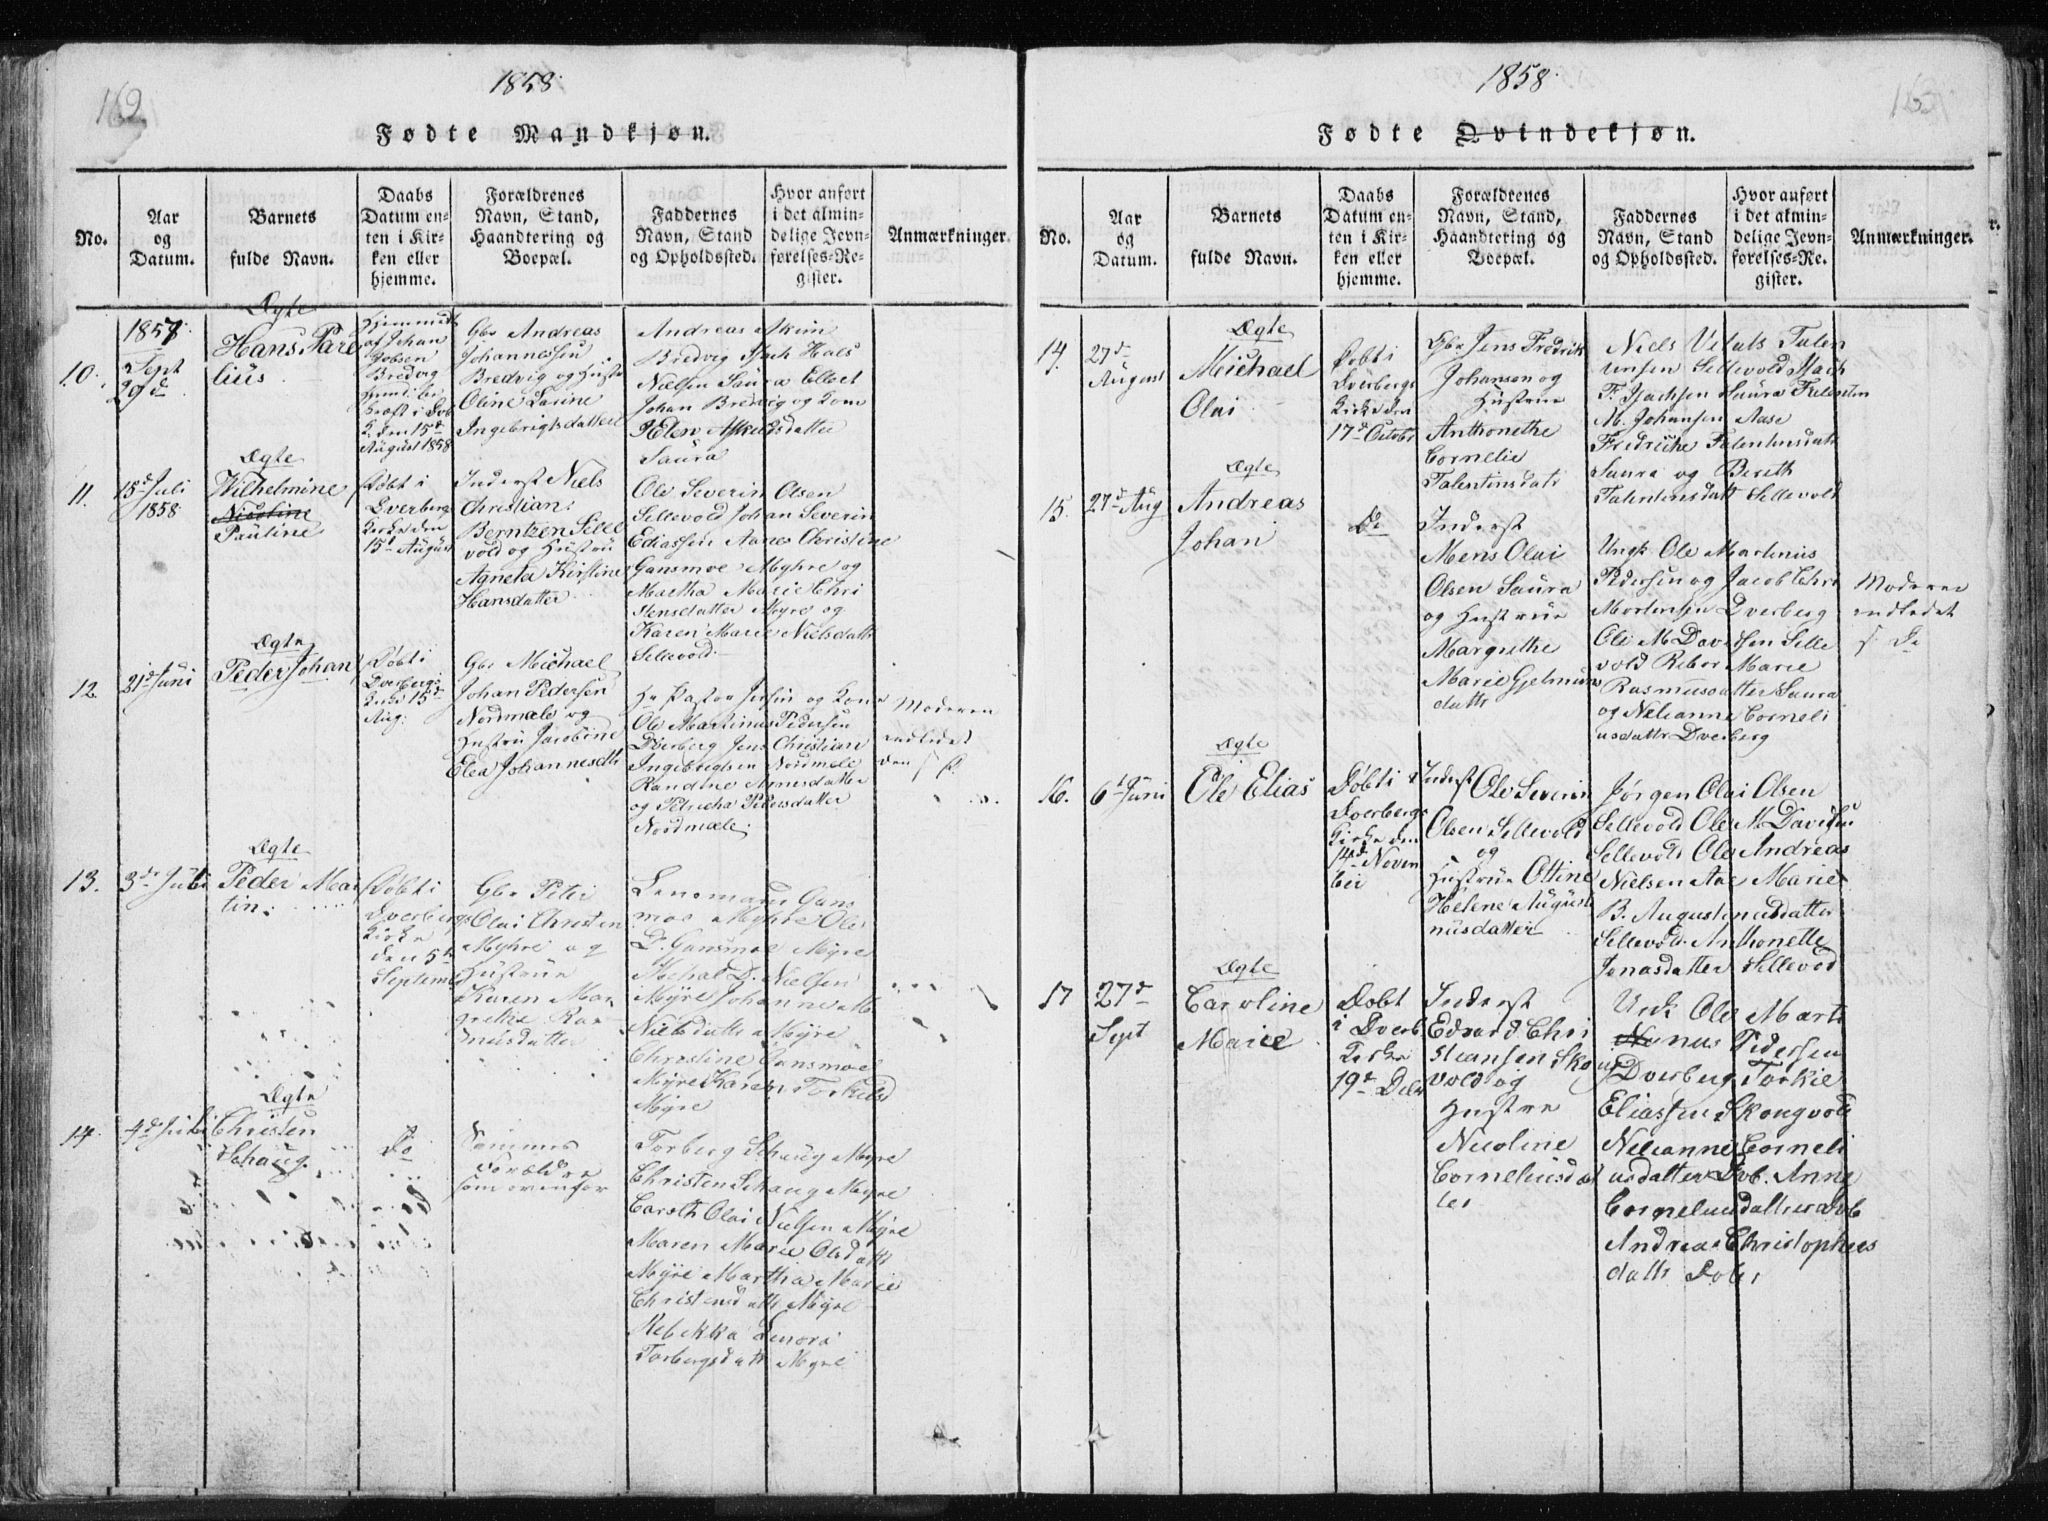 162
1858.
Fødte Mandkjøn.
No.
Aar
og
Datum.
Barnets
fulde Navn.
Daabs
Datum en-
ten i Kir-
ken eller
hjemme.
Forældrenes
Navn, Stand,
Haandtering og
Boepæl.
Faddernes
Navn, Stand
og Opholdssted.
Hvor anført
i det almin-
delige Jevn-
førelses-Re-
gister.
Anmærkninger.
10.
1857.
Sept
29d
Ægte
Hans Pare
lius
Hjemmedt
af Johan
Bredvig
15d
August 1858
Gbr Andreas
Johannessen
Bredvig og Hustr
Oline Larine
Ingebrigtsdatter
Andreas
Bredvig Isach Hals
Nielsen Saura Ellbet
Johan Bredvig og Kone
Helen
Saura
11.
15d Juli
1858
Ægte
Wilhelmine
Nicoline
Pauline
Døbt i
Dverberg
Kirke den
15d August
Inderst Niels
Christian
Berntzen Selle
vold og Hustru
Agneta Kirstine
Hansdatter
Ole Severin Olsen
Sellevold Johan Severin
Ediassen Aanes Christine
Gansmoe Myhre og
Martha Marie Chri
stensdatter Myre og
Karen Marie Nielsdattr
Sellevold.
12.
21d Juni
Ægte
Peder Johan
Døbt i
Dverbergs
Kirke 15d
Aug:
Gbr Michael
Johan Pedersen
Nordmæle og
Hustru Jacobine
Elea Johannesdtr
Hr Pastor og Kone
Ole Martinus Pedersen
Dverberg Jens Christian
Ingebrigtsen Nordmele
Randine Agnesdatter
og Petricka Pedersdatter
Nordmæle.
Moderen
indledet
den s. D.
13.
3de Juli
Ægte
Peder Mar
tin.
Døbt i
Dverbergs
Kirke
den 5te
Septembr
Gbr Peter
Olai Christen
Myhre og
Hustrue
Karen Mar
grethe Ras
musdatter
Lensmand Gans
moe Myhre Ole
D. Gansmoe Myre
Michal D. Nielsen
Myre Johanne M
Nielsdattr Myre
Christine Gansmoe
Myre Karen Torkelsd
Myre
14.
4d Juli
Ægte
Christen
Schaug.
Do
Samme
Forældre
som ovenfor
Torberg Schaug Myre
Christen Schaug Myre
Careth Olai Nielsen Myre
Maren Marie Olsdattr
Myre Martha Marie
Christensdattr Myre
Rebekka Lenora
Torbergsdattr Myre
1858.
Fødte Qvindekjøn.
No.
Aar
og
Datum.
Barnets
fulde Navn.
Daabs
Datum en-
ten i Kir-
ken eller
hjemme.
Forældrenes
Navn, Stand,
Haandtering og
Boepæl.
Faddernes
Navn, Stand
og Opholdssted.
Hvor anført
i det almin-
delige Jevn-
førelses-Re-
gister.
Anmærkninger.
14.
27d
August
Ægte
Michael
Olai
Døbt i
Dverbergs
Kirke den
17d Octobr
Gbr Jens Fredrik
Johansen og
Hustrue
Anthonethe
Cornelie
Talentinsdatr
Niels Talen
tinsen Sellevold Isach
F. Isachsen Saura
M. Johansen Aase
Fredrikke Talentinsdatr
Saura og Bereth
Talentinsdatt Sellevold
15.
27d Aug
Ægte
Andreas
Johan
Do
Inderst
Mens Olai
Olsen Saura
og Hustrue
Margrethe
Marie Gjelmuns
dattr
Ungk Ole Martinus
Pedersen og Jacob Chri
Mortensen Dverberg
Ole M Davidsen Selle
vold Rebor Marie
Rasmusdatter Saura
og Nelianne Corneli
usdattr Dverberg
Moderen
indledet
s. D.
16.
6d Juni
Ægte
Ole Elias
Døbt i
Dverbergs
Kirke den
14d Novem
ber
Inderst Ole Severin
Olsen Sellevold
og
Hustrue Ottine
Helene Augusti
nusdatter
Jørgen Olai Olsen
Sellevold Ole M Davidsen
Sellevold Ole Andreas
Nielsen Aae Marie
B. Augustinusdatter
Sellevold Anthonette
Jonasdatter Sellevod
17
27d
Sept
Ægte
Caroline
Marie
Døbt
i Dverb
Kirke
19d Debr
Inderst
Edvard Chri
stiansen Skoug
vold og
Hustrue
Nicoline
Corneliusdat
ter
Ungk Ole Marti
nus Pedersen
Dverberg Torkil
Eliassen Skougvold
Nelianne Corneli
usdatter Dvb. Anne
Corneliusdatter Dvb
Andrea Christophers
dattr Dvb